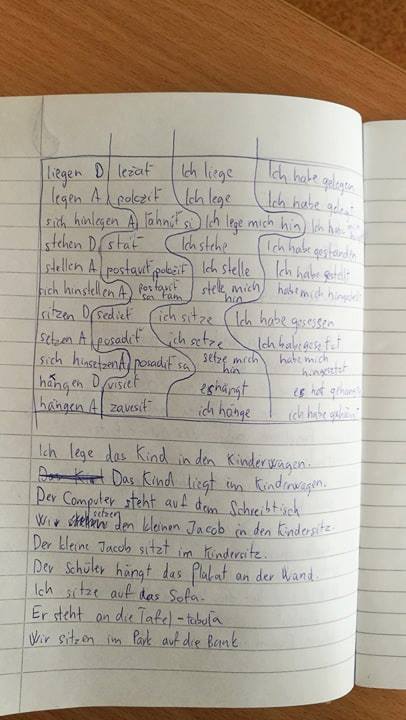 liegen D ležať Ich liege Ich habe gelegen
legen A položiť Ich lege Ich habe gelegt
sich hinlegen A ľahnúť si Ich lege mich hin Ich habe
stehen D stáť Ich stehe Ich habe gestanden
stellen A postaviť položiť Ich stelle Ich habe gestellt
sich hinstellen A postaviť sa tam stelle mich hin habe mich hingestellt
sitzen D sedieť ich sitze Ich habe gesessen
setzen A posadiť ich setze Ich habe gesetzt
sich hinsetzen A posadiť sa setze mich hin habe mich hingesetzt
hängen D visieť es hängt es hat gehangen
hängen A zavesiť ich hänge ich habe gehängt
Ich lege das Kind in den Kinderwagen.
Das Kind liegt im Kinderwagen.
Der Computer steht auf dem Schreibtisch
Wir setzen den kleinen Jacob in den Kindersitz.
Der kleine Jacob sitzt im Kindersitz.
Der Schüler hängt das Plakat an der Wand.
Ich sitze auf das Sofa.
Er steht an die Tafel - tabuľa
Wir sitzen im Park auf die Bank.